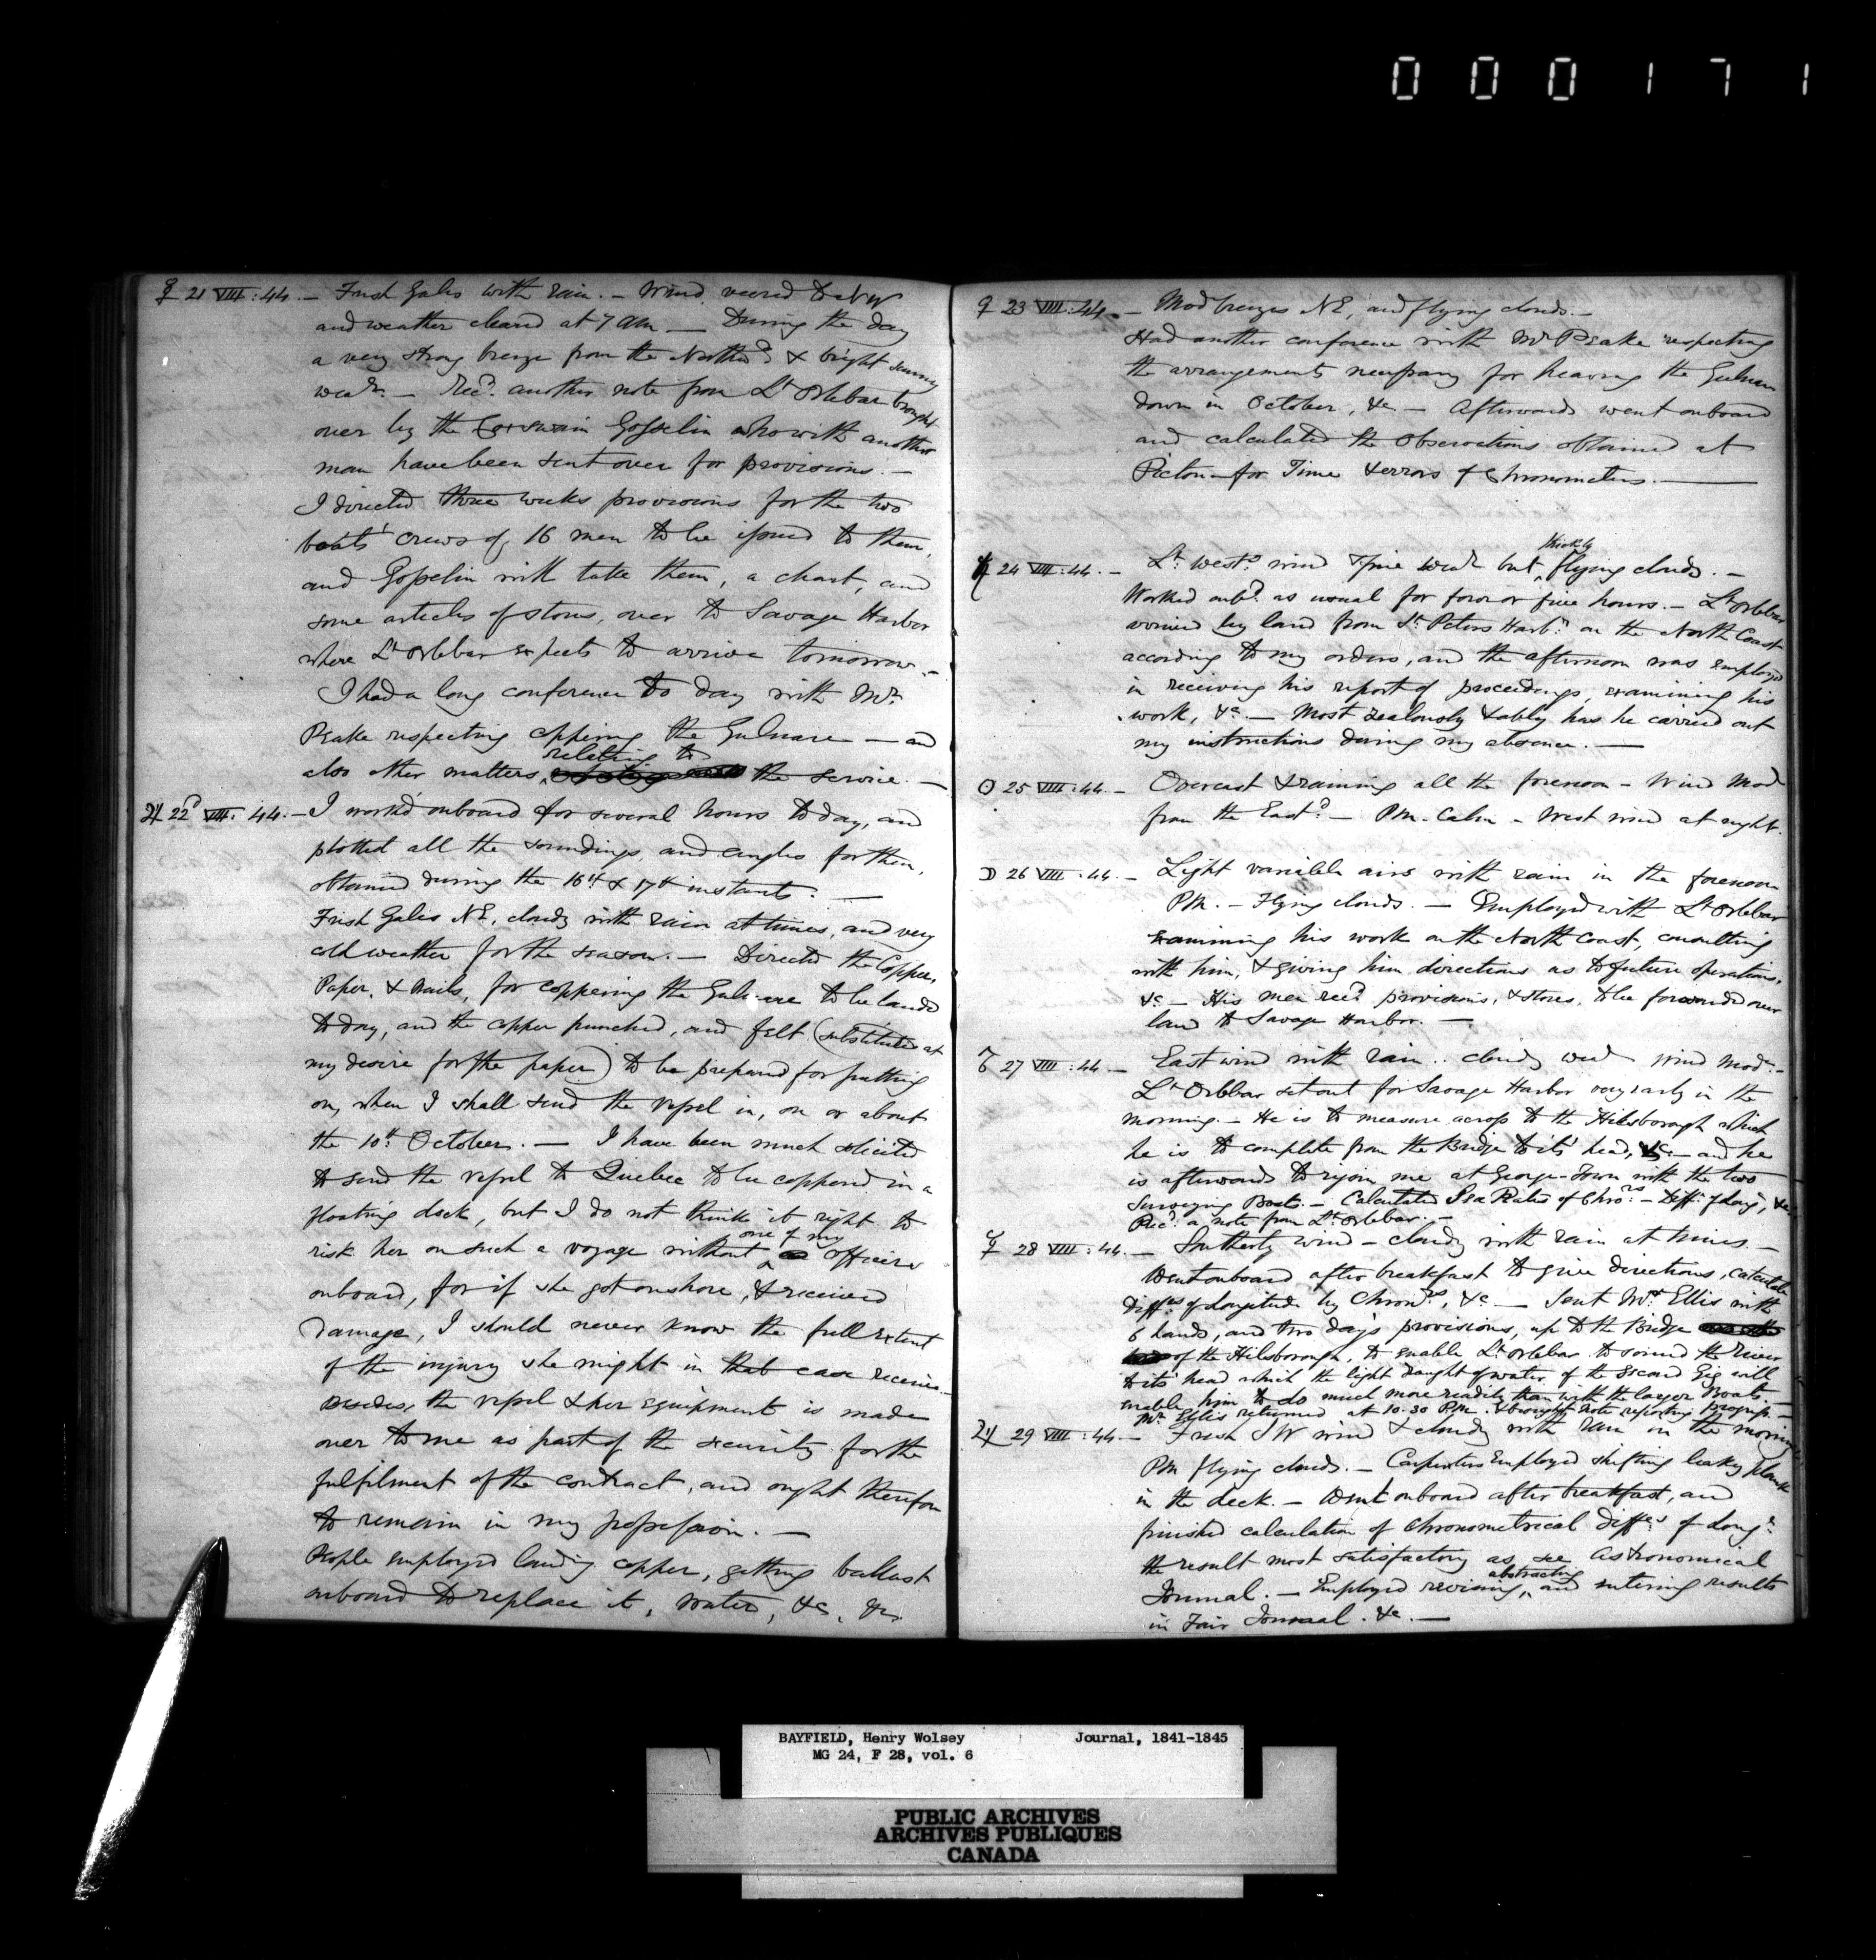 000171
☿ 21 VIII : 44. — Fresh Gales with rain. — Wind veered to NW
and weather cleared at 7 AM — During the day
a very strong breeze from the Northd & bright sunny
wear. — Recd. another note from Lt Orlebar brought
over by the Coxswain Gosselin who with another
man have been sent over for provisions. —
I directed three weeks provisions for the two
boats' crews of 16 men to be issued to them,
and Gosselin will take them, a chart, and
some articles of stores, over to Savage Harbor
where Lt Orlebar expects to arrive tomorrow. —
I had a long conference to day with Mr.
Peake respecting coppering the Gulnare — and
also other matters relating to the service. —
♃ 22d VIII : 44. — I work'd onboard for several hours to day, and
plotted all the soundings, and angles for them,
obtained during the 16th & 17th instants. —
Fresh Gales NE, cloudy with rain at times, and very
cold weather for the season. — Directed the Copper,
Paper, & Nails, for coppering the Gulnare to be landed
to day, and the copper punched, and felt (substituted at
my desire for the paper) to be prepared for putting
on, when I shall send the vessel in, on or about
the 10th October. — I have been much solicited
to send the vessel to Quebec to be coppered in a
floating dock, but I do not think it right to
risk her on such a voyage without one of my officers
onboard, for if she got onshore, & received
damage, I should never know the full extent
of the injury she might in that case receive. —
Besides, the vessel & her equipment is made
over to me as part of the security for the
fulfilment of the contract, and ought therefore
to remain in my possession. —
People employed landing copper, getting ballast
onboard to replace it, water, &c, &c.
♀ 23 VIII : 44. — Mod breezes NE, and flying clouds. —
Had another conference with Mr Peake respecting
the arrangements necessary for heaving the Gulnare
down in October, &c — Afterwards went onboard
and calculated the Observations obtained at
Pictou for Time & errors of Chronometers. —
♄ 24 VIII : 44. — Lt. westd. wind & fine wear but thickly flying clouds. —
Worked onbd. as usual for four or five hours. — Lt Orlebar
arrived by land from St. Peters Harbr. on the North Coast
according to my orders, and the afternoon was employed
in receiving his report of proceedings, examining his
work, &c. — Most zealously & ably has he carried out
my instructions during my absence. —
☉ 25 VIII : 44. — Overcast & raining all the forenoon — Wind Mod
from the Eastd. — PM. Calm — West wind at night.
☽ 26 VIII : 44. — Light variable airs with rain in the forenoon
PM. — Flying clouds. — Employed with Lt Orlebar
examining his work on the North Coast, consulting
with him, & giving him directions as to future operations,
&c — His men recd. provisions, & stores, to be forwarded over
land to Savage Harbor. —
♂ 27 VIII : 44. — East wind with rain .. cloudy wear wind mode. —
Lt Orlebar set out for Savage Harbor very early in the
morning. — He is to measure across to the Hilsborough which
he is to complete from the Bridge to its' head, &c — and he
is afterwards to rejoin me at George-Town with the two
Surveying Boats. — Calculated Sea Rates of Chrors. — Diffs. of Long, &c
Recd. a note from Lt. Orlebar. —
☿ 28 VIII : 44. — Southerly wind — cloudy with rain at times. —
Went onboard after breakfast to give directions, calculate
Diffces of Longitude by Chronrs, &c — Sent Mr. Ellis with
6 hands, and two days provisions, up to the Bridge
of the Hilsborough, to enable Lt Orlebar to sound the river
to its' head which the light draught of water of the second Gig will
enable him to do much more readily than with the larger Boats. —
Mr. Ellis returned at 10.30 PM. & brought note reporting Progress. —
♃ 29 VIII : 44. — Fresh SW wind & cloudy with rain in the morning
PM flying clouds. — Carpenters Employed shifting leaky plank
in the deck. — Went onboard after breakfast, and
finished calculation of Chronometrical diffces of Longe.
the result most satisfactory as see Astronomical
Journal. — Employed revising, abstracting and entering results
in Fair Journal. &c. —
BAYFIELD, Henry Wolsey Journal, 1841-1845
MG 24, F 28, vol. 6
PUBLIC ARCHIVES
ARCHIVES PUBLIQUES
CANADA